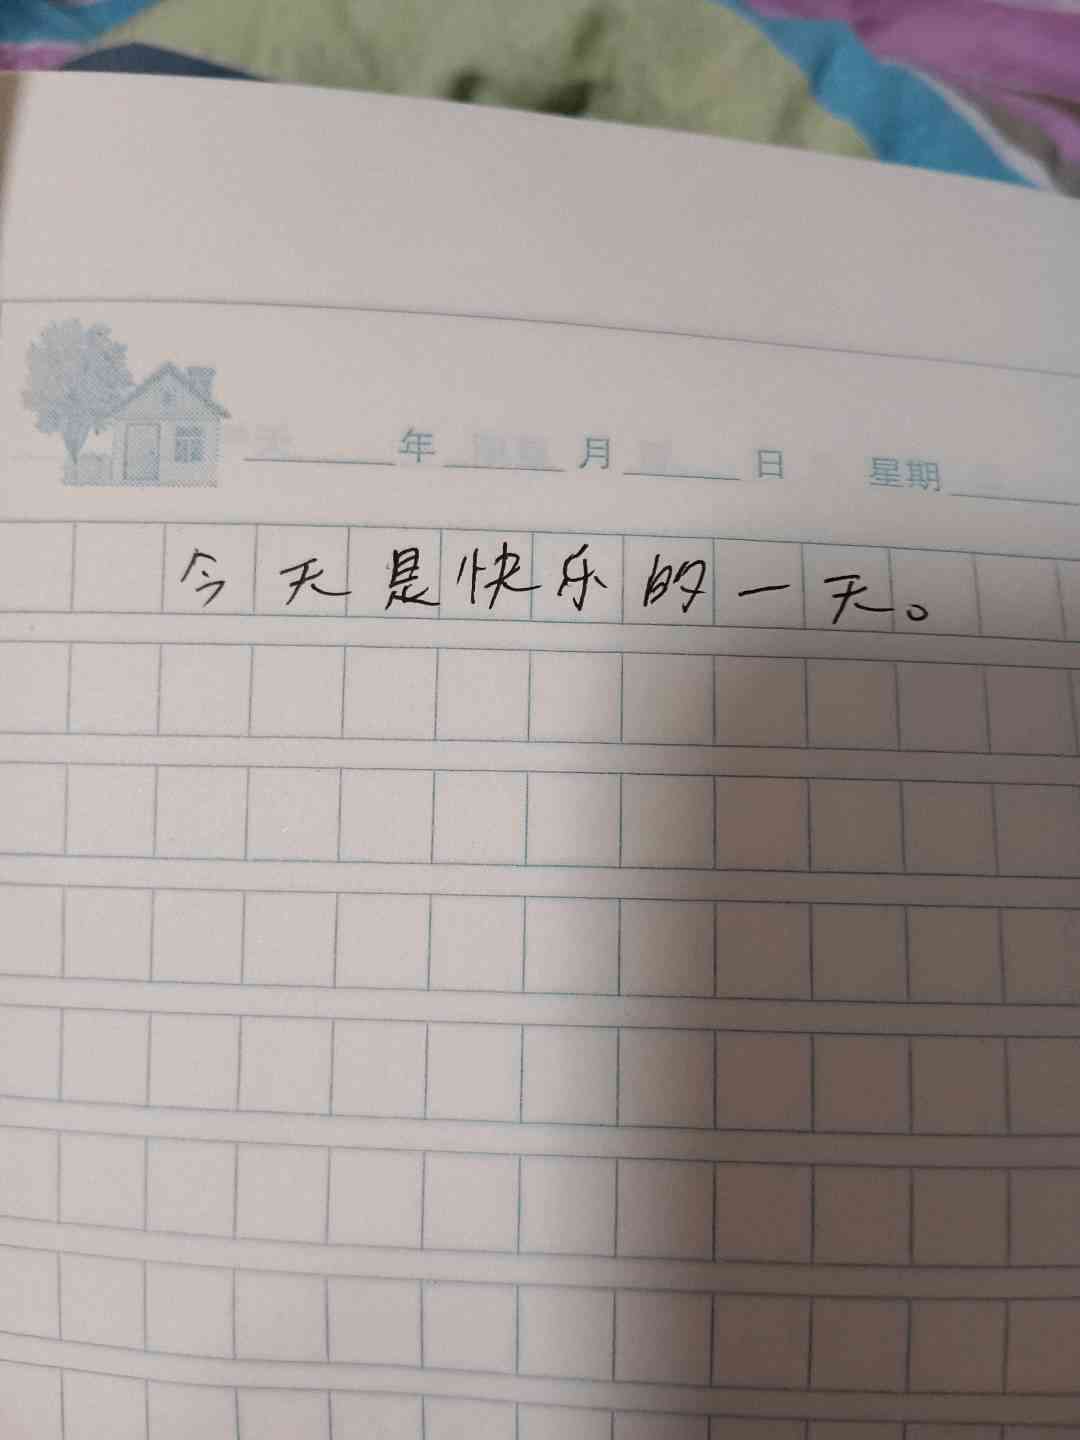 年 月 日 星期
今天是快乐的一天。